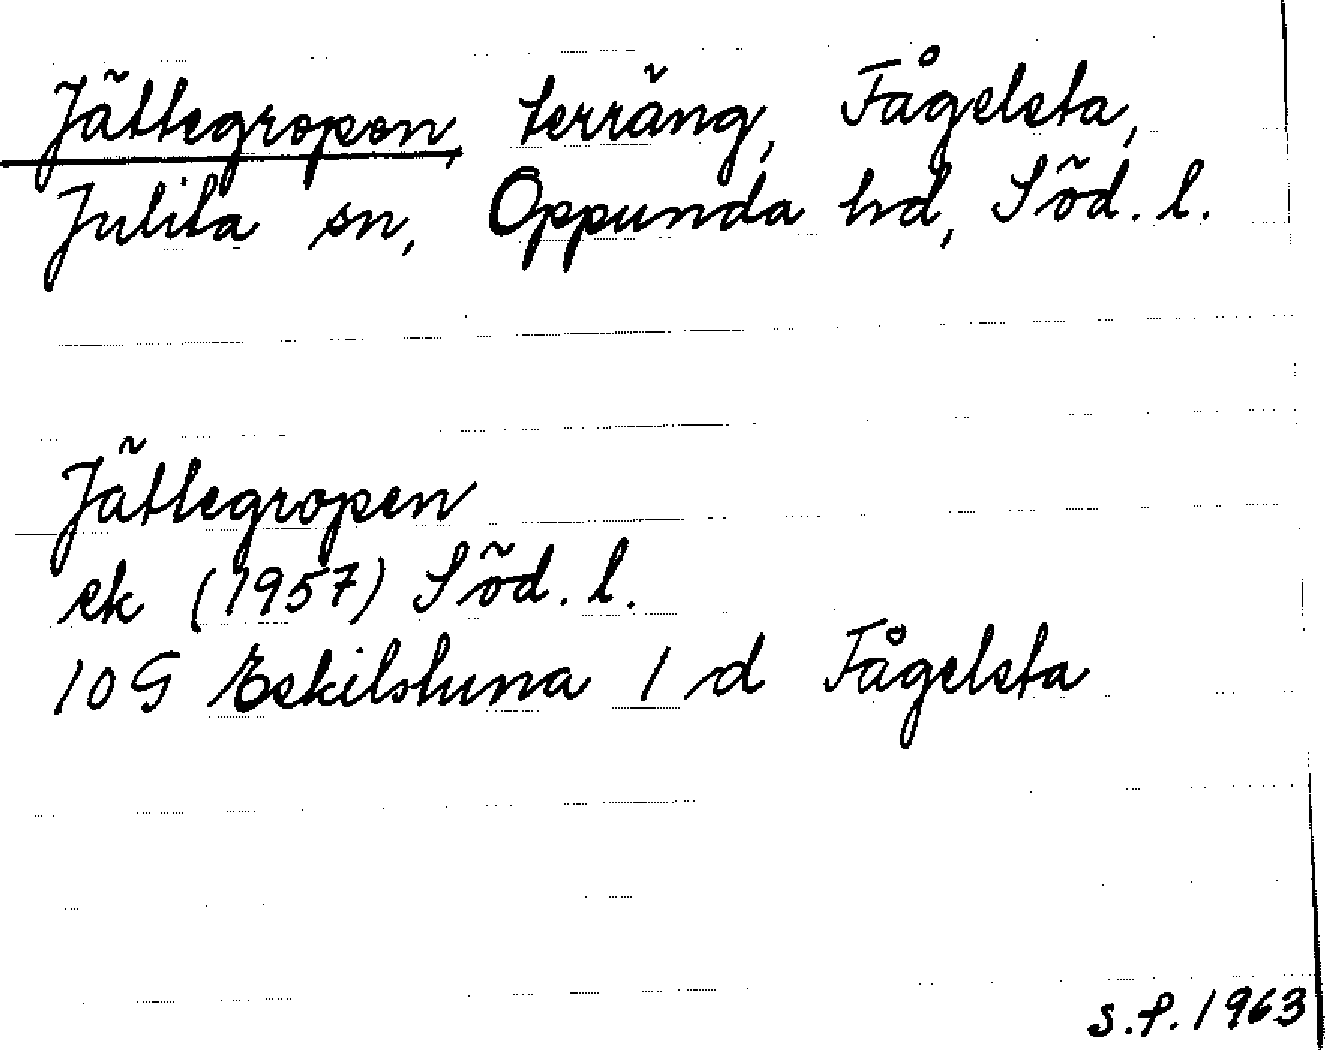 Jättegropen, terräng, Fågelsta,
Julita sn, Oppunda hd, Söd. l.
Jättegropen
ek (1957) Söd. l.
10G Eskilstuna 1 d Fågelsta
S.P. 1963